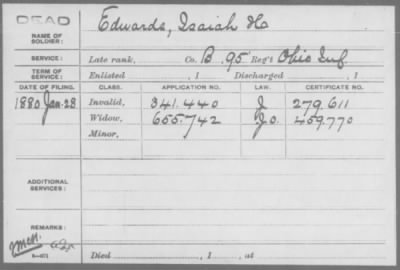 DEAD
NAME OF SOLDIER: Edwards, Isaiah
SERVICE: Late rank, Co. B. 95 Reg't Ohio Inf.
TERM OF SERVICE: Enlisted , 1 Discharged , 1
DATE OF FILING. CLASS. APPLICATION NO. LAW. CERTIFICATE NO.
1880 Jan. 28 Invalid, 341.440 J 279.611
Widow, 655.742 J.O. 459.770
Minor,
ADDITIONAL SERVICES:
REMARKS:
Died , 1 , at